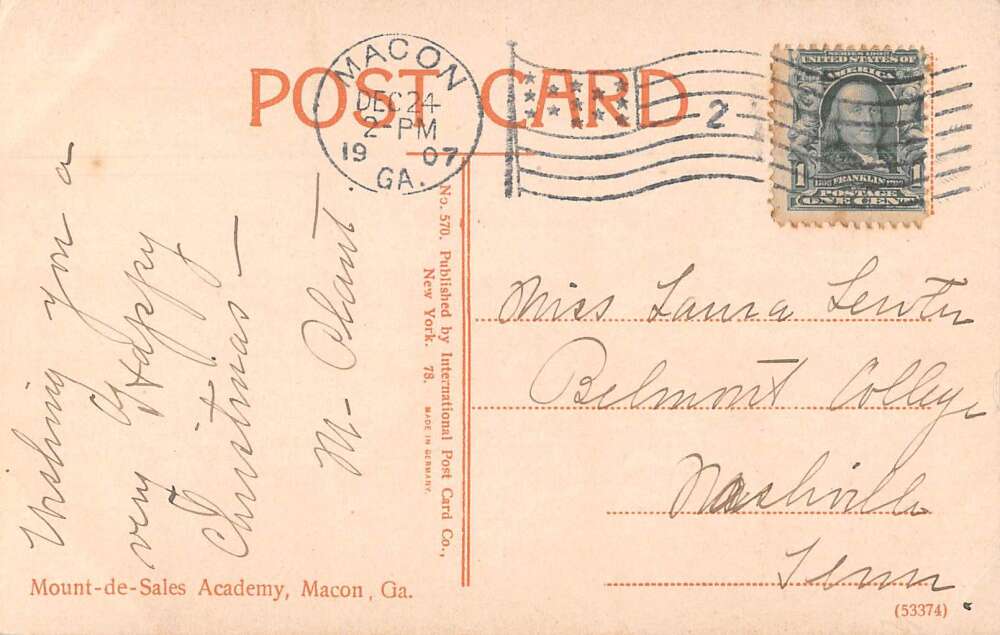 POST CARD
MACON
DEC 24
2-PM
19 07
GA.
2
SERIES 1902
UNITED STATES OF
AMERICA
1 FRANKLIN 1
POSTAGE
ONE CENT
Wishing you a
very Happy
Christmas —
M. Plant —
No. 570. Published by International Post Card Co.,
New York. 78. MADE IN GERMANY.
Miss Laura
Belmont College
Nashville
Tenn
Mount-de-Sales Academy, Macon, Ga.
(53374)